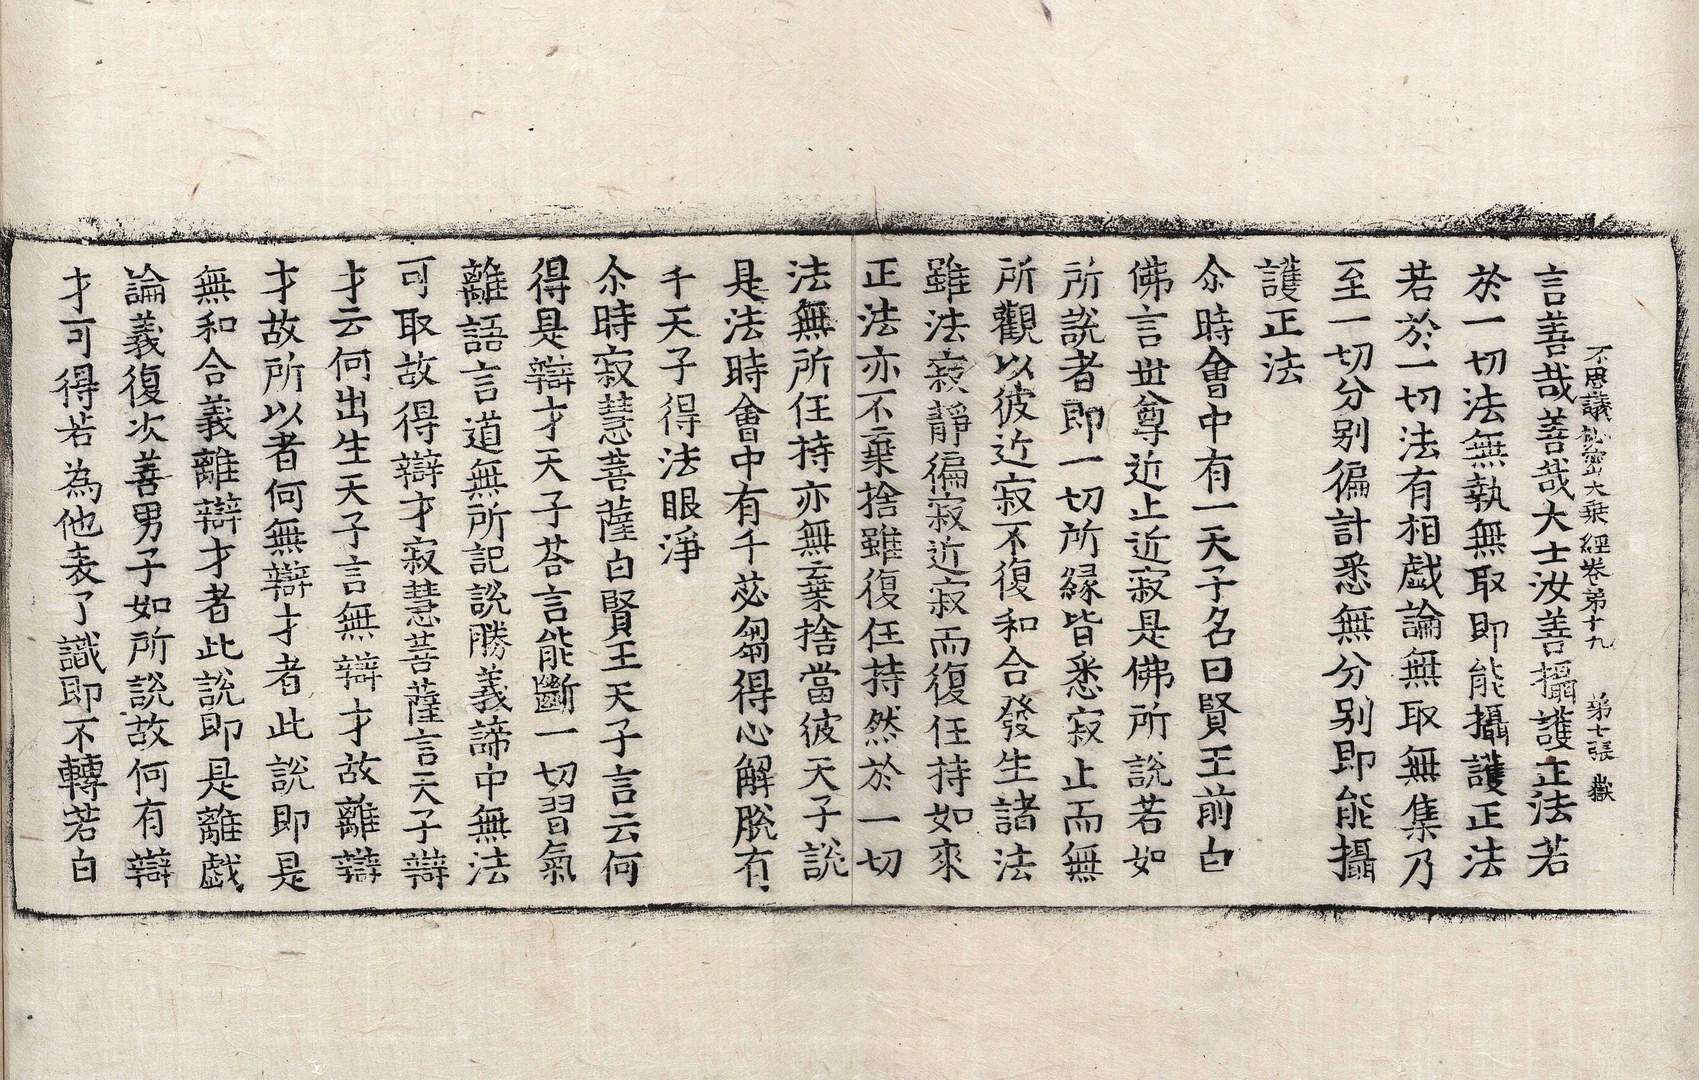 不思議祕密大乘經卷第十九 第七張 嶽
言善哉善哉大士汝善攝護正法若
於一切法無執無取即能攝護正法
若於一切法有相戲論無取無集乃
至一切分別徧計悉無分別即能攝
護正法
尒時會中有一天子名曰賢王前白
佛言世尊近止近寂是佛所說若如
所說者即一切所緣皆悉寂止而無
所觀以彼近寂不復和合發生諸法
雖法寂靜徧寂近寂而復任持如來
正法亦不棄捨雖復任持然於一切
法無所任持亦無棄捨當彼天子說
是法時會中有千苾芻得心解脫有
千天子得法眼淨
尒時寂慧菩薩白賢王天子言云何
得是辯才天子荅言能斷一切習氣
離語言道無所記說勝義諦中無法
可取故得辯才寂慧菩薩言天子辯
才云何出生天子言無辯才故離辯
才故所以者何無辯才者此說即是
無和合義離辯才者此說即是離戲
論義復次善男子如所說故何有辯
才可得若為他表了識即不轉若白